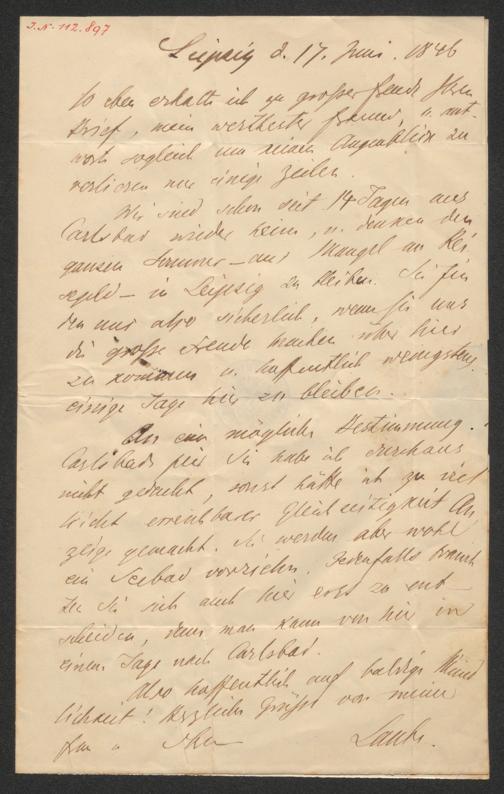 J.N. 112.897
Leipzig d. 17. Juni. 1846
So eben erhalte ich zu großer Freude Ihren
Brief, mein werthester Freund, u. ant-
worte sogleich um keinen Augenblick zu
verlieren nur einige Zeilen.
Wir sind schon seit 14 Tagen aus
Carlsbad wieder heim, u. denken den
ganzen Sommer – aus Mangel an Rei
segeld – in Leipzig zu bleiben. Sie fin
den uns also sicherlich, wenn Sie uns
die große Freude machen über hier
zu kommen u. hoffentlich wenigstens
einige Tage hier zu bleiben.
An eine mögliche Bestimmung
Carlsbads für Sie habe ich durchaus
nicht gedacht, sonst hätte ich zu viel
leicht erreichbarer Gleichzeitigkeit An
zeige gemacht. Sie werden aber wohl
ein Seebad vorziehn. Jedenfalls brauch
en Sie sich auch hier erst zu ent-
scheiden, denn man kann von hier in
einem Tage nach Carlsbad.
Also hoffentlich auf baldige Münd
lichkeit! Herzliche Grüße von meiner
Frau u Ihrem
Laube.